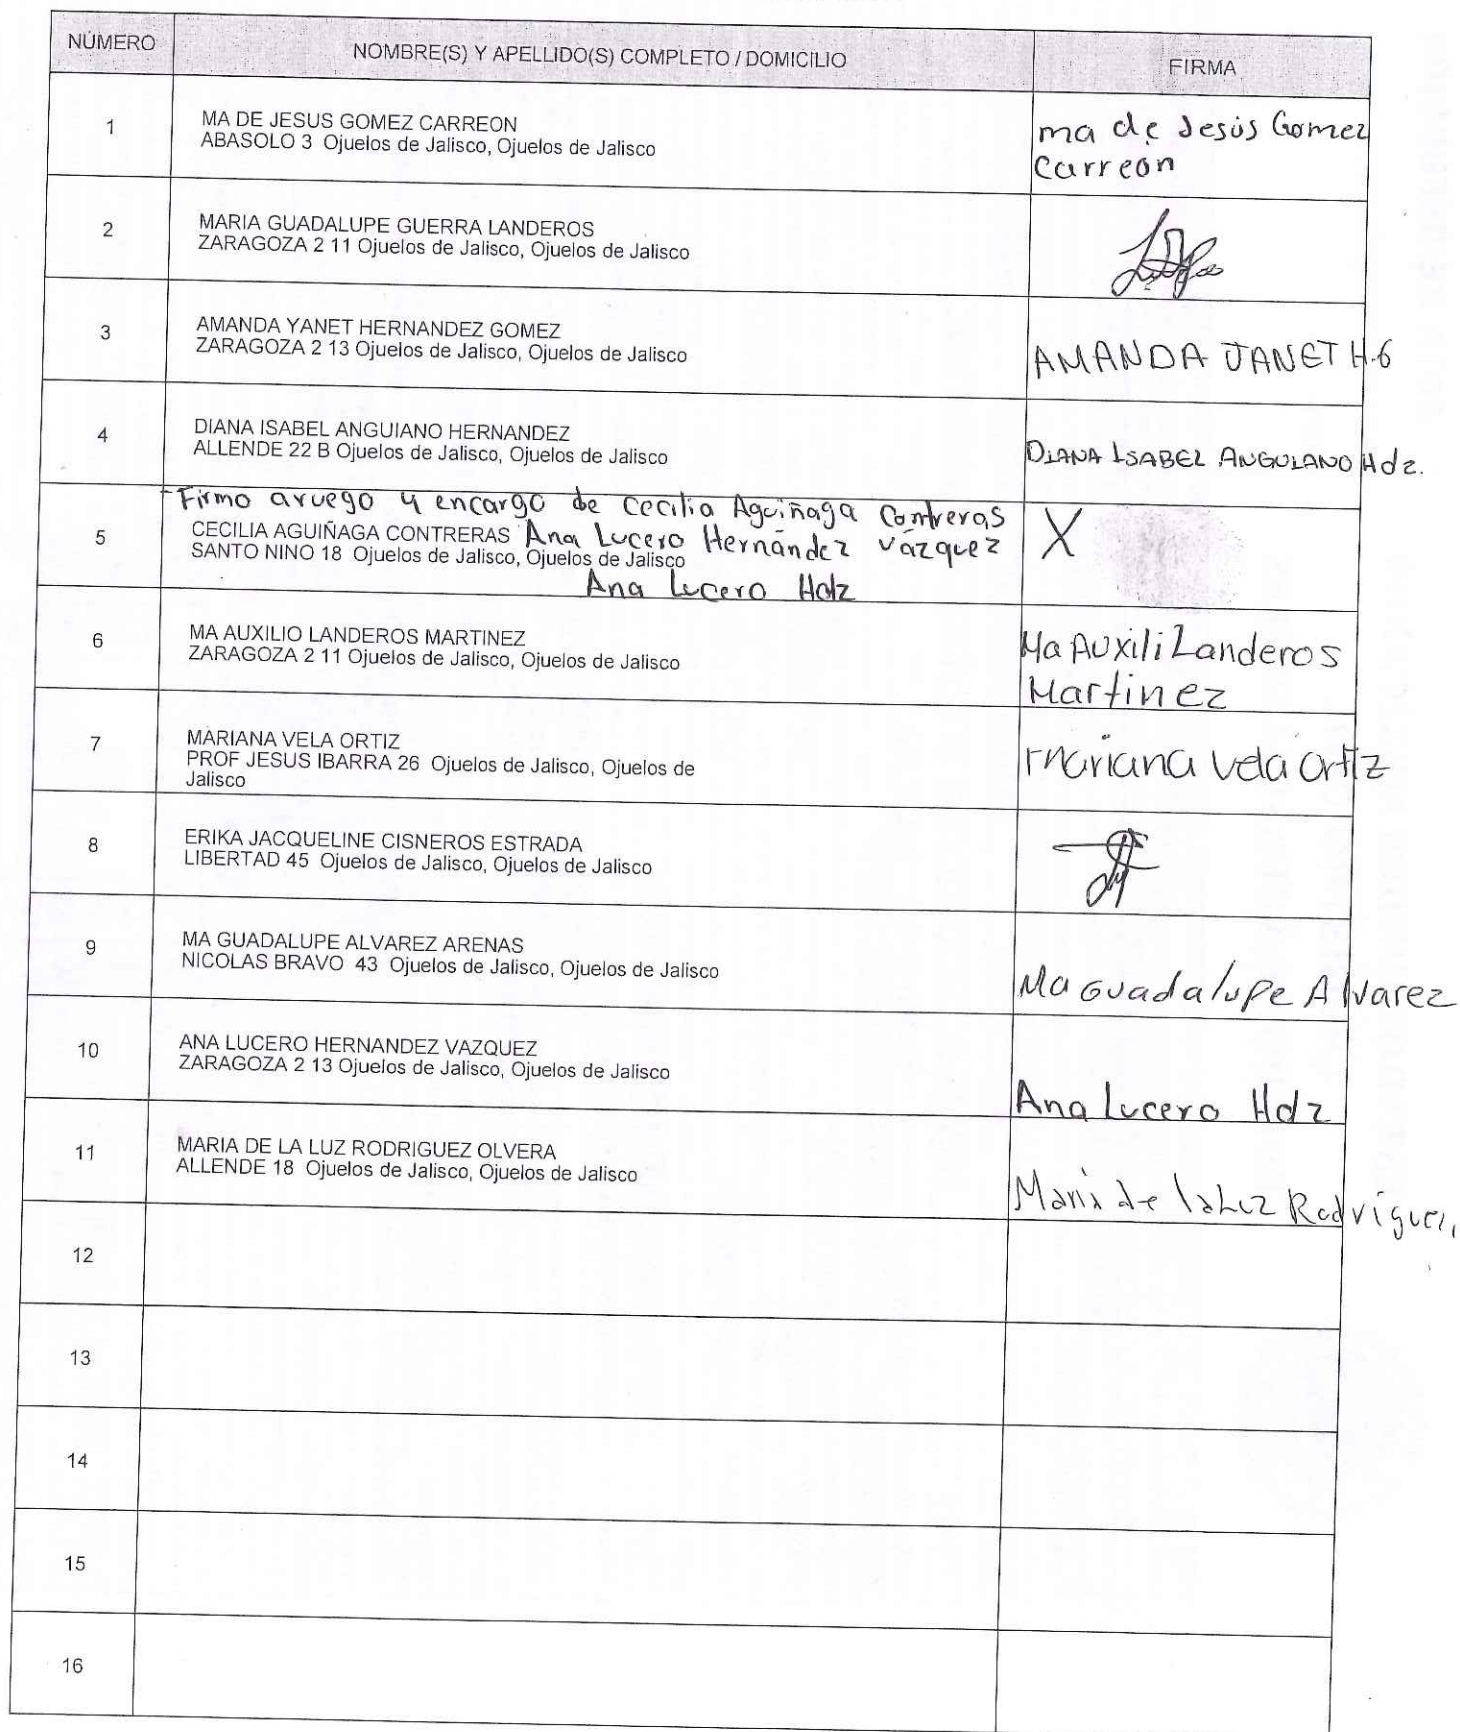 NÚMERO NOMBRE(S) Y APELLIDO(S) COMPLETO / DOMICILIO FIRMA
1 MA DE JESUS GOMEZ CARREON
ABASOLO 3 Ojuelos de Jalisco, Ojuelos de Jalisco
ma de Jesús Gomez
Carreón
2 MARIA GUADALUPE GUERRA LANDEROS
ZARAGOZA 2 11 Ojuelos de Jalisco, Ojuelos de Jalisco
3 AMANDA YANET HERNANDEZ GOMEZ
ZARAGOZA 2 13 Ojuelos de Jalisco, Ojuelos de Jalisco
AMANDA JANET H.G
4 DIANA ISABEL ANGUIANO HERNANDEZ
ALLENDE 22 B Ojuelos de Jalisco, Ojuelos de Jalisco
DIANA ISABEL ANGUIANO Hdz.
Firmo aruego y encargo de Cecilia Aguiñaga Contreras
5 CECILIA AGUIÑAGA CONTRERAS Ana Lucero Hernández Vázquez
SANTO NINO 18 Ojuelos de Jalisco, Ojuelos de Jalisco
Ana Lucero Hdz
X
6 MA AUXILIO LANDEROS MARTINEZ
ZARAGOZA 2 11 Ojuelos de Jalisco, Ojuelos de Jalisco
Ma Auxili Landeros
Martinez
7 MARIANA VELA ORTIZ
PROF JESUS IBARRA 26 Ojuelos de Jalisco, Ojuelos de
Jalisco
mariana Vela Ortiz
8 ERIKA JACQUELINE CISNEROS ESTRADA
LIBERTAD 45 Ojuelos de Jalisco, Ojuelos de Jalisco
9 MA GUADALUPE ALVAREZ ARENAS
NICOLAS BRAVO 43 Ojuelos de Jalisco, Ojuelos de Jalisco
Ma Guadalupe Alvarez
10 ANA LUCERO HERNANDEZ VAZQUEZ
ZARAGOZA 2 13 Ojuelos de Jalisco, Ojuelos de Jalisco
Ana Lucero Hdz
11 MARIA DE LA LUZ RODRIGUEZ OLVERA
ALLENDE 18 Ojuelos de Jalisco, Ojuelos de Jalisco
Maria de la Luz Rodríguez
12
13
14
15
16